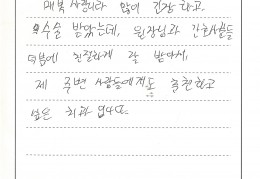 많이 긴장 하고.
수술 받았는데, 원장님과 간호사분들
덕분에 친절하게 잘 받아서,
제 주변 사람들에게도 추천하고
싶은 치과 입니다.